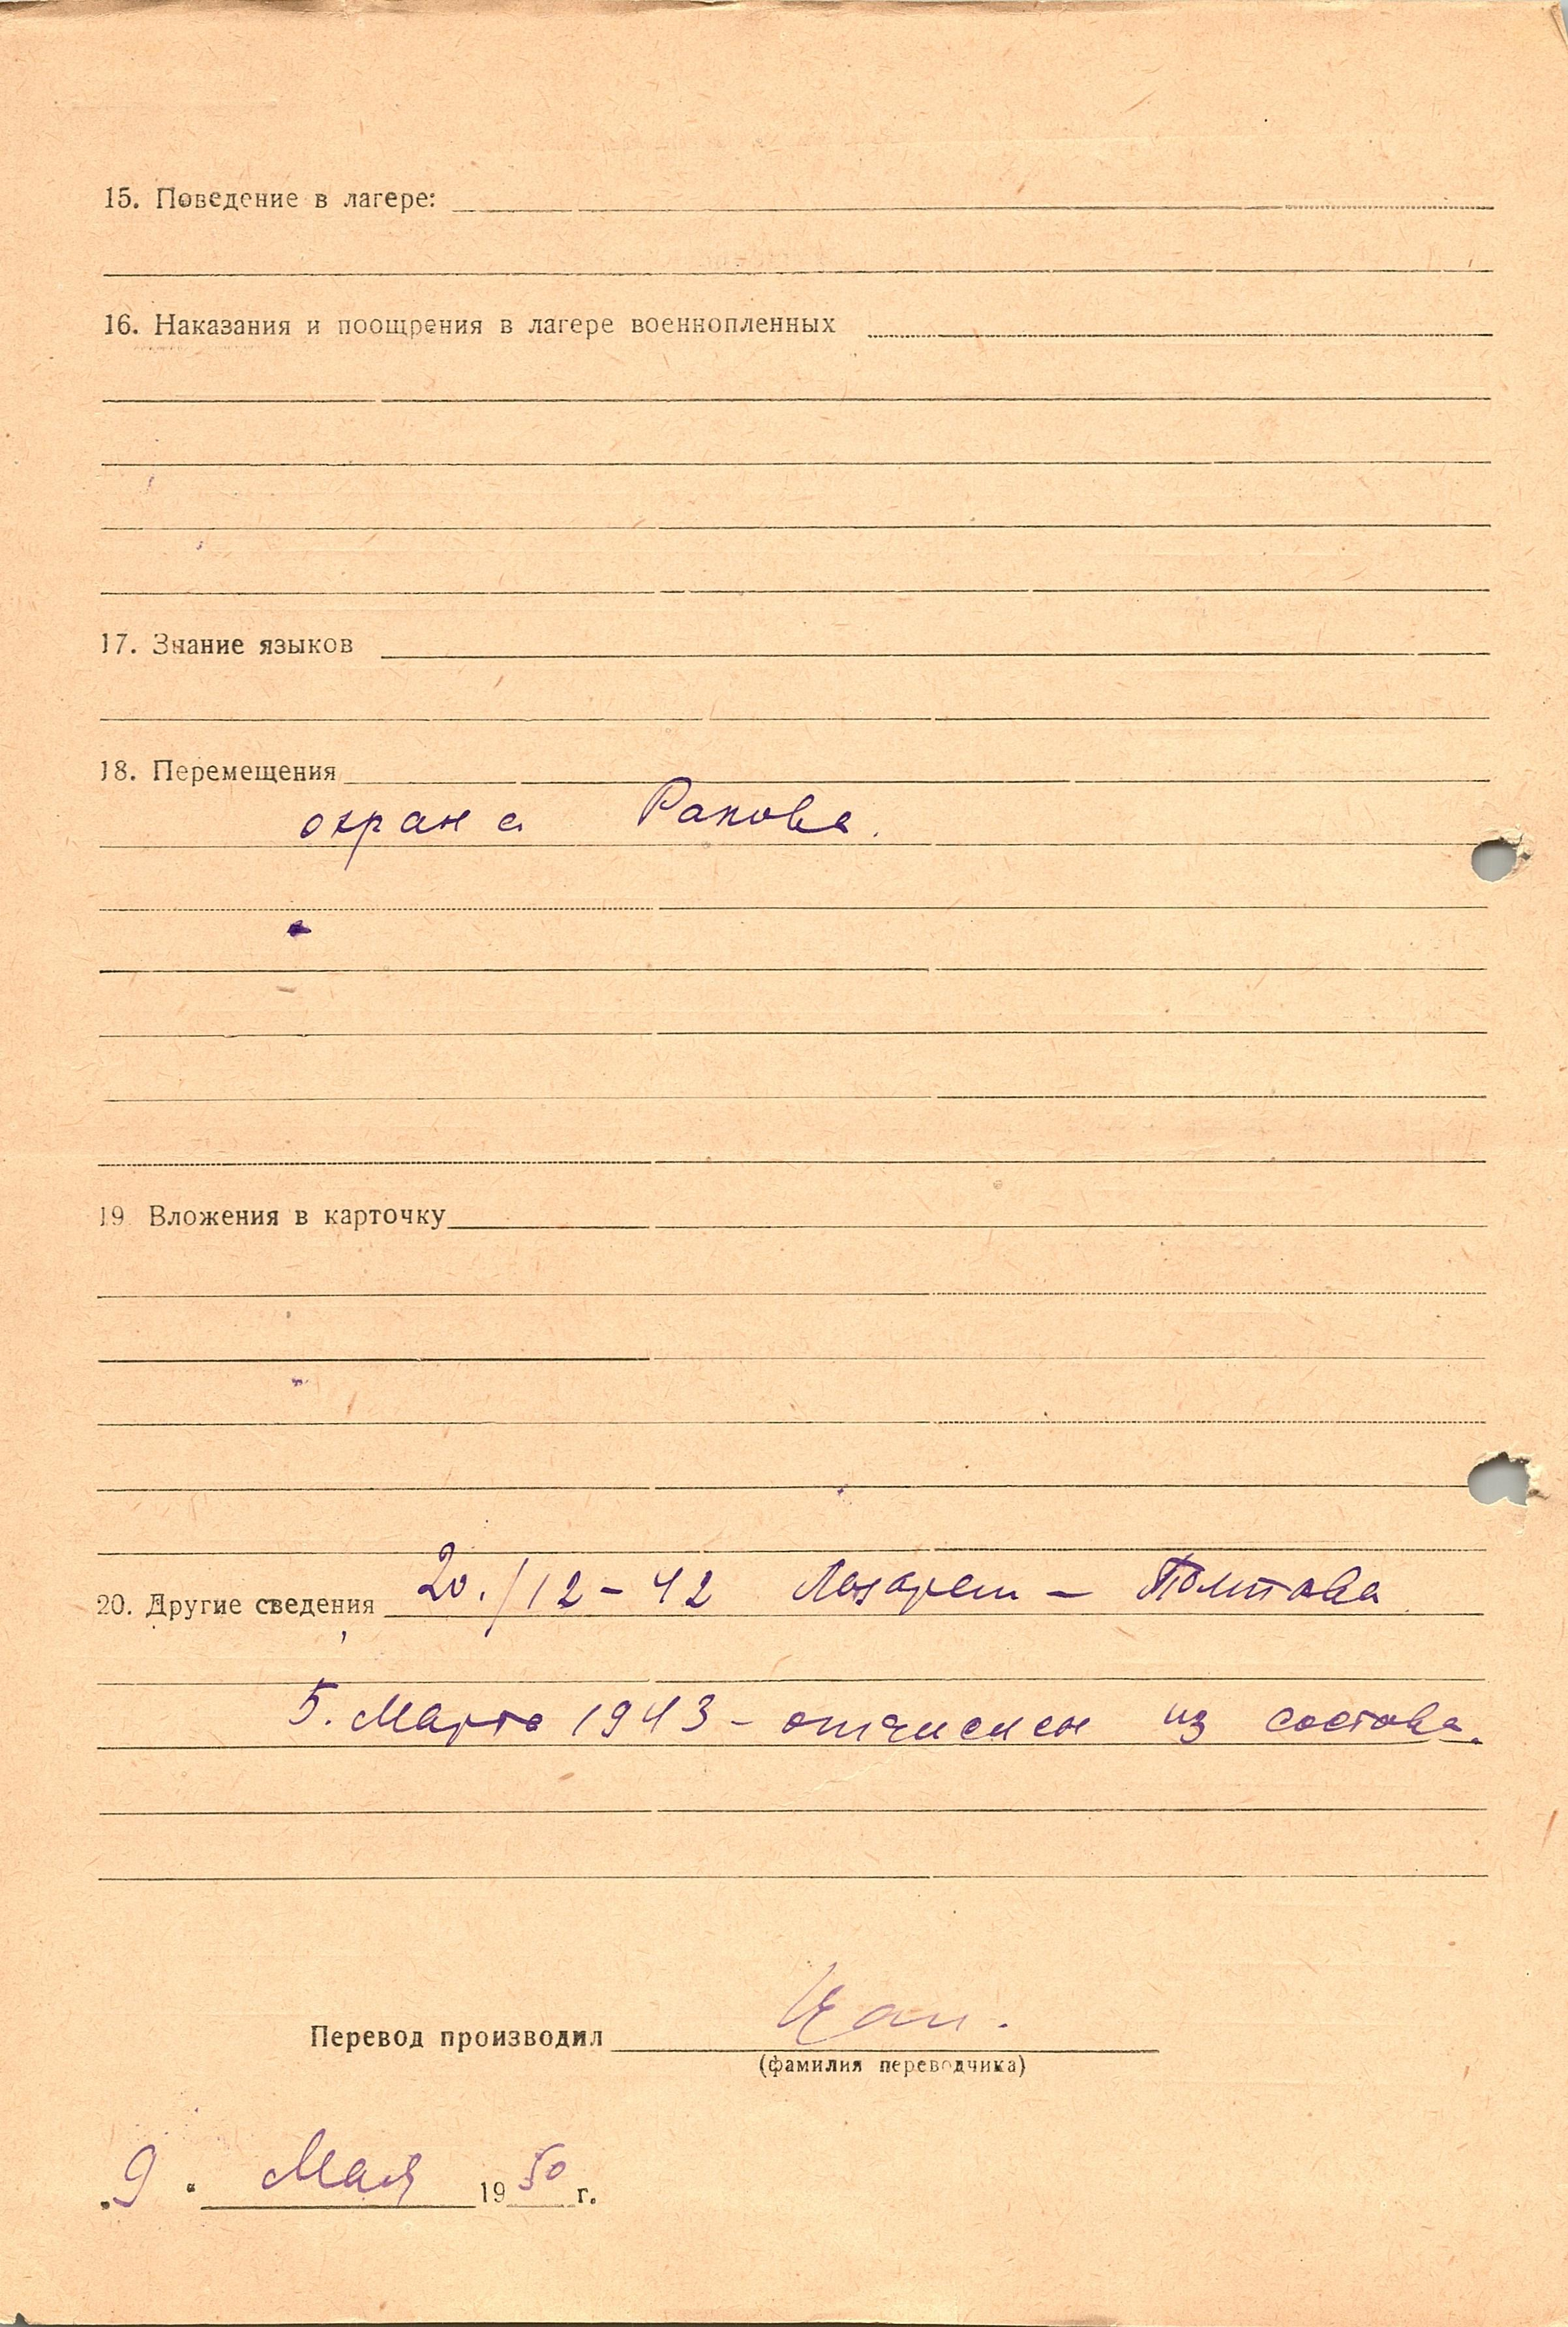 15. Поведение в лагере:
16. Наказания и поощрения в лагере военнопленных
17. Знание языков
18. Перемещения
охрана Ракова.
19. Вложения в карточку
20. Другие сведения 20./12-42 Лазарет - Полтава
5. Марта 1943 - отчислен из состава.
Перевод производил
(фамилия переводчика)
„9“ Мая 1950 г.